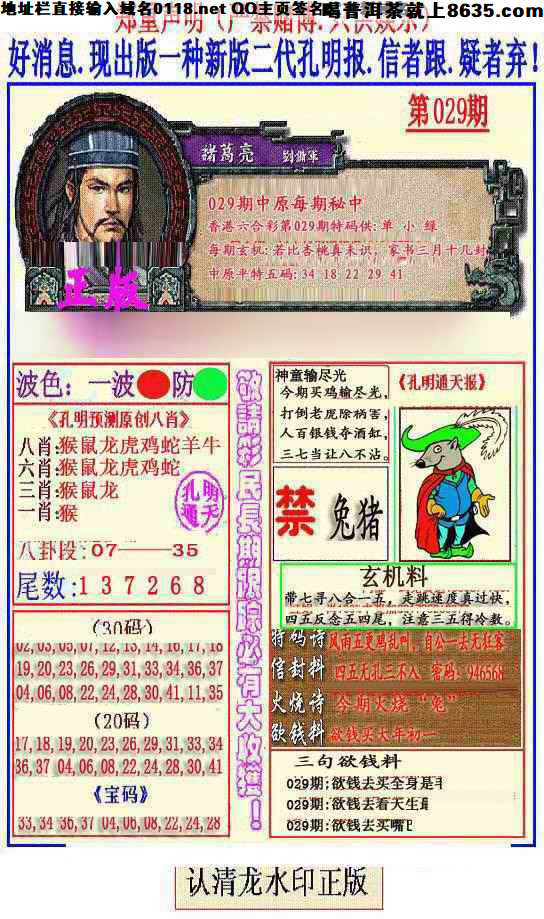 地址栏直接输入域名0118.net QQ主页签名
喝普洱茶就上8635.com
郑重声明(严禁赌博.只供娱乐)
好消息.现出版一种新版二代孔明报.信者跟.疑者弃!
第029期
諸葛亮 劉備軍
029期中原每期秘中
香港六合彩第029期特码供:单 小 绿
每期玄机:若比杏桃真未识，家书三月十几封
中原平特五码:34 18 22 29 41
正版
波色：一波 防
《孔明预测原创八肖》
八肖:猴鼠龙虎鸡蛇羊牛
六肖:猴鼠龙虎鸡蛇
三肖:猴鼠龙
一肖:猴
孔明通天
八卦段:07——35
尾数:137268
(30码)
02,03,05,07,12,13,14,16,17,18
19,20,23,26,29,31,33,34,36,37
04,06,08,22,24,28,30,41,11,35
(20码)
17,18,19,20,23,26,29,31,33,34
36,37 04,06,08,22,24,28,30,41
《宝码》
33,34 36,37 04,06,08,22,24,28
敬請彩民長期跟踪必有大收獲！
神童输尽光
今期买鸡输尽光,
打倒老虎除祸害,
人百银钱夺酒缸,
三七当让八不沾。
《孔明通天报》
禁 兔猪
玄机料
带七寻八合一五，走跳速度真过快,
四五反念五四尾，注意三五得冷数。
特码诗 风雨五更鸡乱叫，自公一去无狂客
信封料 四五无孔三不入 密码:946568
火烧诗 今期火烧“兔”
欲钱料 欲钱买大年初一
三句欲钱料
029期:欲钱去买全身是
029期:欲钱去看天生
029期:欲钱去买嘴
认清龙水印正版